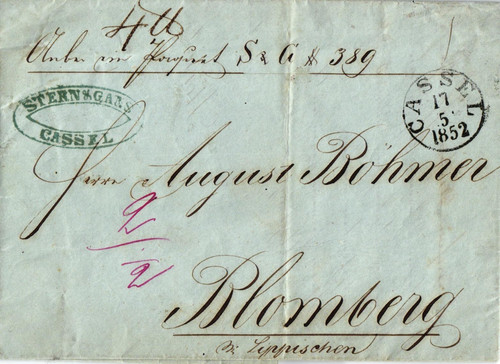 4 ℔
Anbei ein Paquet S & G № 389
STERN & GANS
CASSEL
CASSEL
17
5
1852
Herrn August Böhmer
2/2
Blomberg
i/ Lippischen